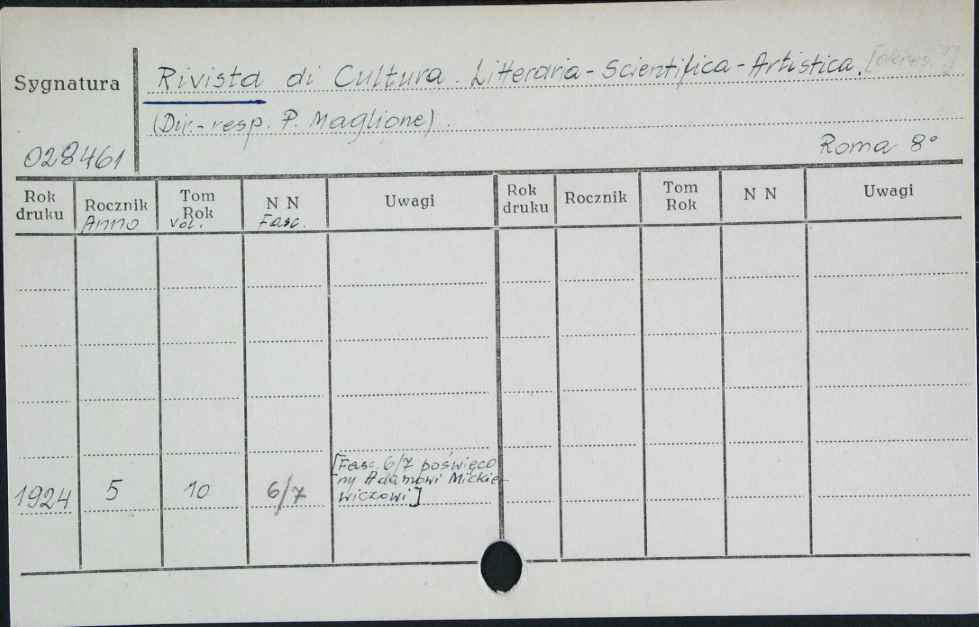 Sygnatura
Rivista di Cultura. Litteraria-Scientifica-Artistica.
(Dir.-resp. P. Maglione).
028461
Roma 8°
Rok druku Rocznik Tom Rok N N Uwagi Rok druku Rocznik Tom Rok N N Uwagi
Anno Vol. Fasc.
[Fasc. 6/7 poświęco
ny Adamowi Mickie-
wiczowi]
1924 5 10 6/7